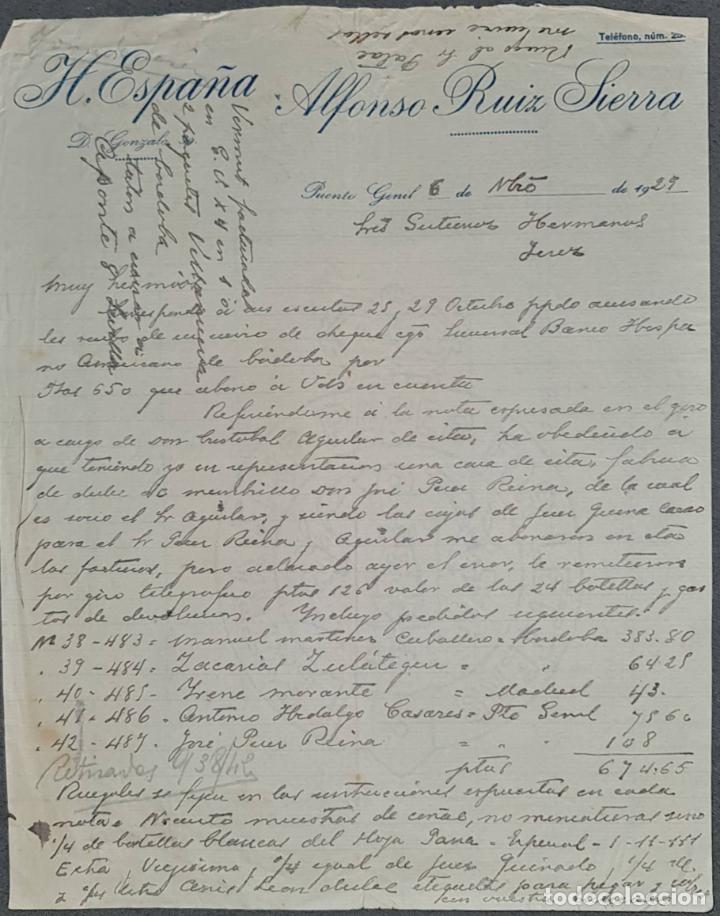 Ruego al Sr
Teléfono, núm. 25.
H. España Alfonso Ruiz Sierra
D. Gonzalo
Puente Genil 6 de Nbre de 1929
Sres Gutierrez Hermanos
Jerez
Vermut facturados
en G. V. x 4 en 1 o
2 paquetes
de Cordoba
Muy Sres mios
Correspondo á sus escritos 25, 29 Octubre ppdo acusando
les de un envio de cheque c/o Sucursal Banco Hispa
no Americano de Córdoba por
Ptas 650 que abono á Vds en cuenta
Refiriendome á la nota expresada en el giro
a cargo de Don Cristobal Aguilar de esta, ha obedecido a
que teniendo yo en representacion una casa de esta, fabrica
de dulce de membrillo Don José Perez Reina, de la cual
es socio el Sr Aguilar, y siendo las cajas de Jerez Quina
para el Sr Perez Reina y Aguilar me abonaron en esta
las facturas, pero aclarado ayer el error, le remitieron
por giro telegrafico ptas 126 valor de las 24 botellas y gas
tos de devolucion. Incluyo pedidos siguientes.
Nº 38 - 483 = Manuel Martinez Caballero = Cordoba 383.80
" 39 - 484 = Zacarias Zulátegui = " 64 25
" 40 - 485 - Irene Morante = Madrid 43.
" 41 - 486 - Antonio Hidalgo Casares = Pte Genil 75 60
" 42 - 487 - José Perez Reina = " " 108
Retirados 9/38/42 ptas 674.65
Ruegoles se fijen en las instrucciones expuestas en cada
nota = Necesito muestras de coñac, no miniaturas sino
1/4 de botellas blancas del Hoja Pana - Especial - 1-11-111
Extra, Viejisima, 2/4 igual de Jerez Quinado 1/4 de
Anis Leon dulce etiquetas para pegar y